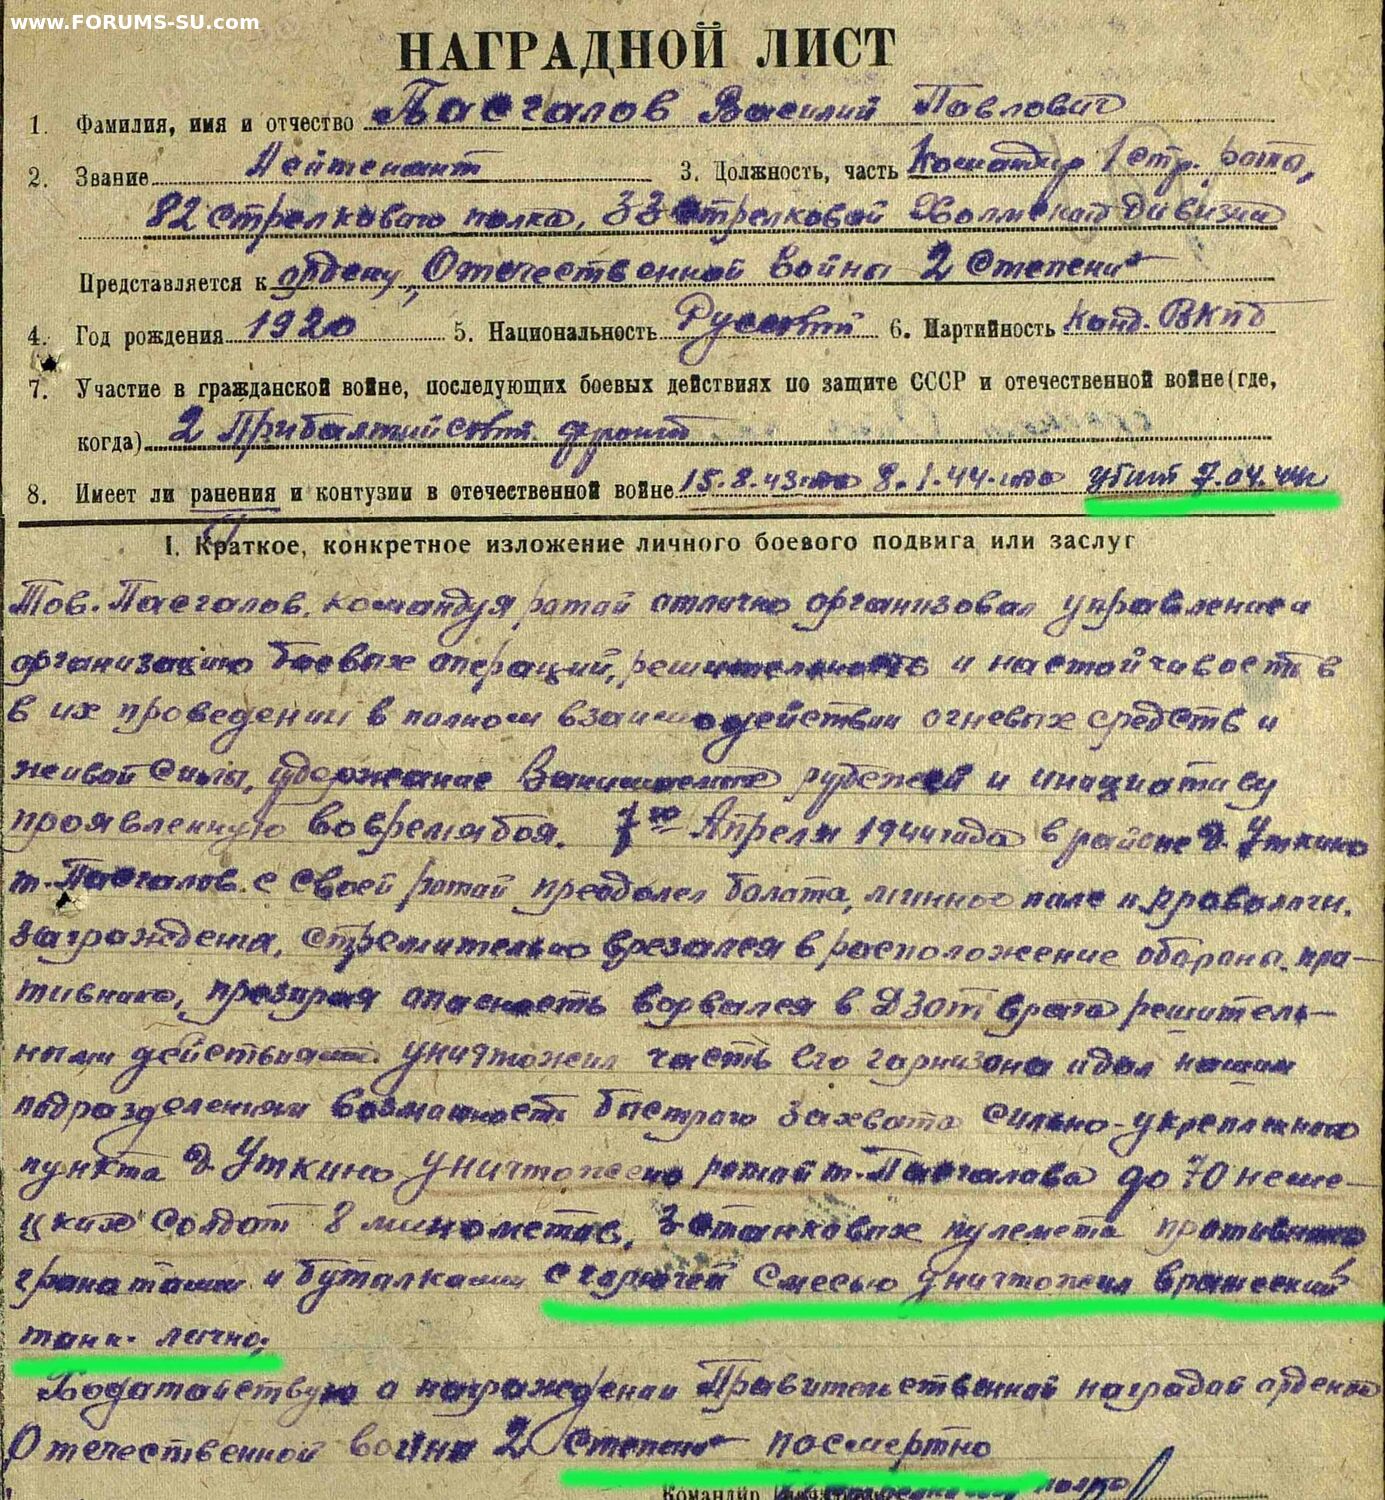 www.FORUMS-SU.com
НАГРАДНОЙ ЛИСТ
1. Фамилия, имя и отчество Пасгалов Василий Павлович
2. Звание Лейтенант 3. Должность, часть Командир 1 стр. роты,
82 стрелкового полка, 33 стрелковой Холмской дивизии
Представляется к ордену „Отечественной войны 2 степени"
4. Год рождения 1920 5. Национальность Русский 6. Партийность Канд. ВКПб
7. Участие в гражданской войне, последующих боевых действиях по защите СССР и отечественной войне (где,
когда) 2 Прибалтийский фронт
8. Имеет ли ранения и контузии в отечественной войне 15.8.43 8.1.44 убит 7.04.44г
I. Краткое, конкретное изложение личного боевого подвига или заслуг
Тов. Пасгалов, командуя ротай отлично организовал управление и
организацию боевых операций, решительность и настойчивость в
в их проведении в полном взаимодействии огневых средств и
живой силы, удержание занимаемых рубежей и инициативу
проявленную во время боя. 7го Апреля 1944 года в районе д. Уткино
т. Пасгалов с своей ротай преодолел болота, минное поле и проволочн.
заграждения, стремительно врезался в расположение обороны про-
тивника, презирая опасность ворвался в ДЗОТ врага решитель-
ными действиями уничтожил часть его гарнизона и дал нашим
подразделениям возможность быстрого захвата сильно-укрепленного
пункта д. Уткино уничтожено ротай т. Пасгалова до 70 неме-
цких солдат 8 минометов, 3 станковых пулемета противника
гранатами и бутылками с горючей смесью уничтожил вражеский
танк лично;
Ходатайствую о награждении Правительственной наградой орденом
Отечественной войны 2 степени посмертно
Командир полка